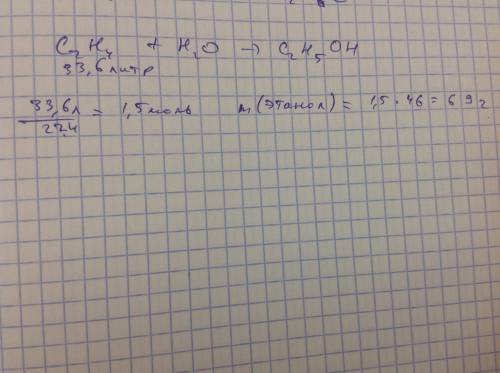 C₂H₄ + H₂O → C₂H₅OH
33,6 литр
33,6л/22,4 = 1,5 моль м(этанол) = 1,5 · 46 = 69г